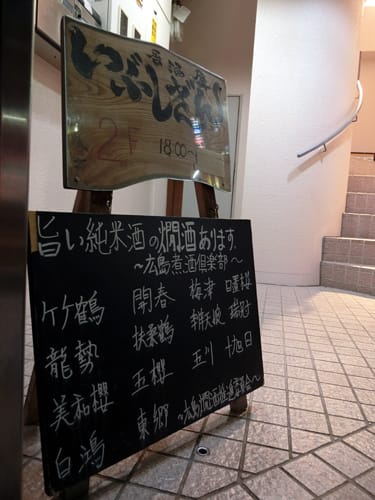 居酒屋
いぶしぎん
2F 18:00~
旨い純米酒の燗酒あります。
~広島煮酒倶楽部~
竹鶴 開春 梅津 日置桜
龍勢 扶桑鶴 辨天娘
美和櫻 玉櫻 玉川 十旭日
白鴻 東郷 ~広島燗酒推進